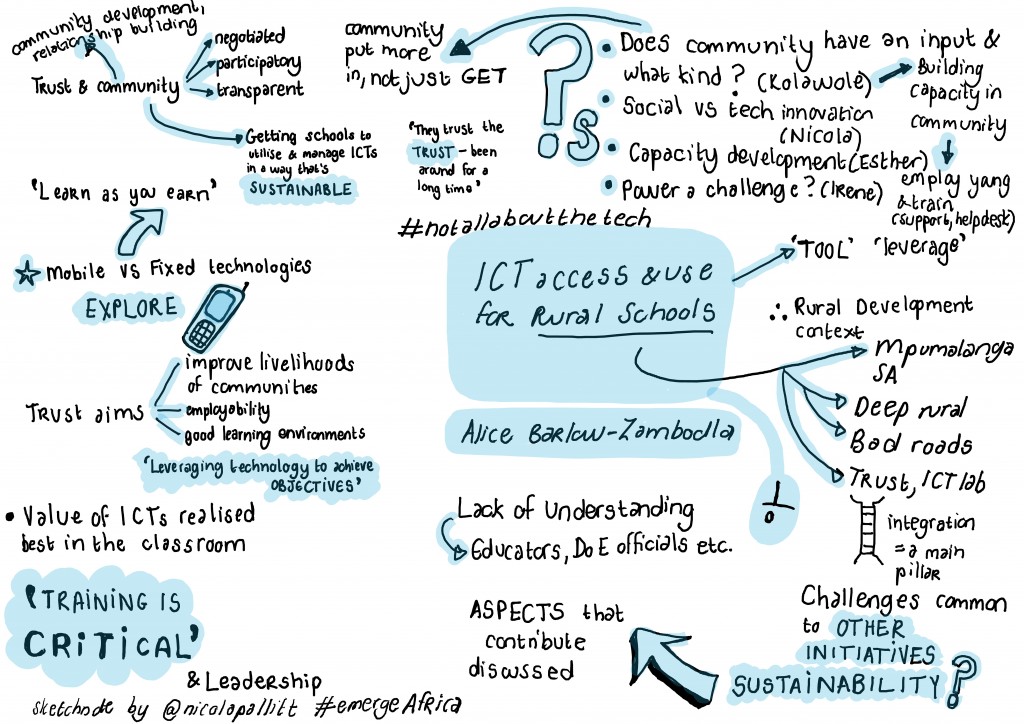 community development,
relationship building
Trust & community
negotiated
participatory
transparent
Getting schools to
utilise & manage ICTs
in a way that's
SUSTAINABLE
'Learn as you earn'
Mobile vs Fixed technologies
EXPLORE
Trust aims
improve livelihoods
of communities
employability
good learning environments
'Leveraging technology to achieve
OBJECTIVES'
• Value of ICTs realised
best in the classroom
'TRAINING IS
CRITICAL'
& Leadership
sketchnote by @nicolapallitt #emergeAfrica
community
put more
in, not just GET
'They trust the
TRUST - been
around for a
long time'
?s
• Does community have an input &
what kind? (Kolawole)
• Social vs tech innovation
(Nicola)
• Capacity development (Esther)
• Power a challenge? (Irene)
Building
capacity in
community
employ yang
& train
(support, helpdesk)
#notallaboutthetech
ICT access & use
for Rural Schools
Alice Barlow-Zambodla
'TOOL' 'leverage'
∴ Rural Development
context
Mpumalanga
SA
Deep rural
Bad roads
Trust, ICT lab
integration
= a main
pillar
Lack of Understanding
Educators, DoE officials etc.
ASPECTS that
contribute
discussed
Challenges common
to OTHER
INITIATIVES
SUSTAINABILITY?